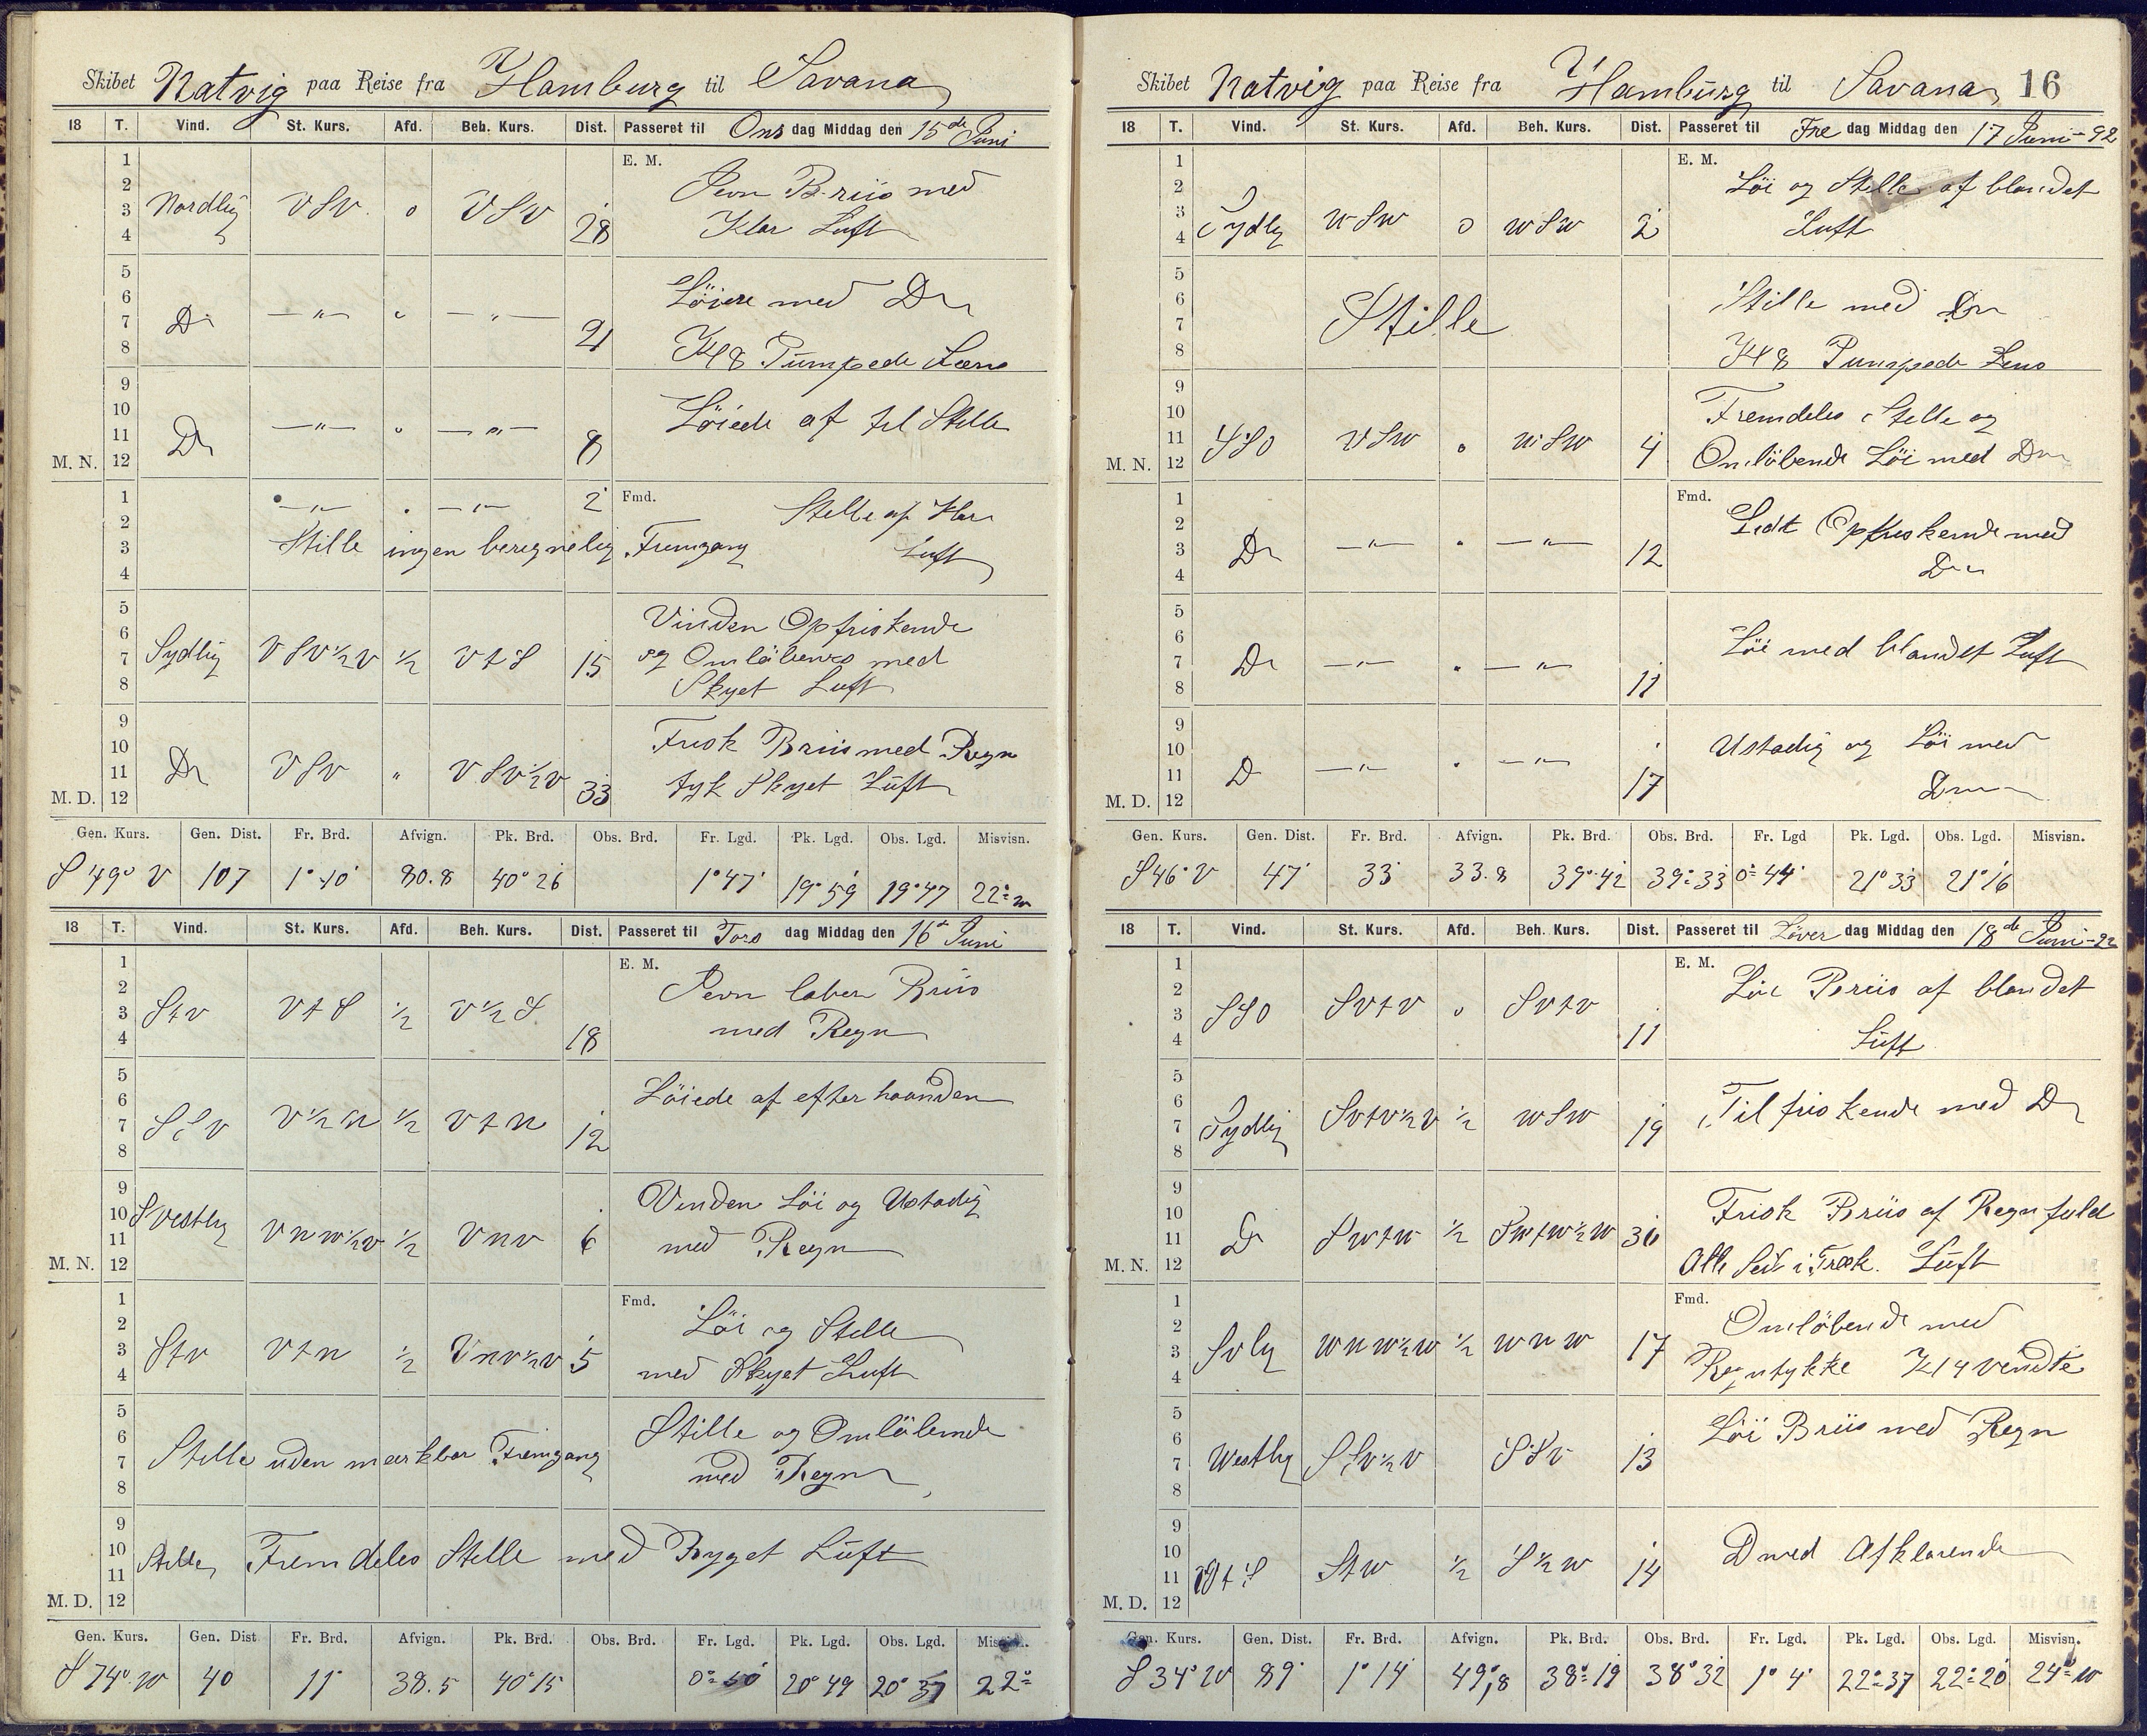 Skibet Natvig paa Reise fra Hamburg til Savana
18 T. Vind. St. Kurs. Afd. Beh. Kurs. Dist. Passeret til Ons dag Middag den 15de Juni
E. M.
1
2
3
4
Nordlig VSV. 0 VSV 28
Pevn Briis med
Klar Luft
5
6
7
8
Do — " — " — " — 21
Löiere med Do
Kl 8 Pumpede Læns
9
10
11
M. N. 12
Do — " — " — " — 8
Löiede af til Stille
Fmd.
1
2
3
4
— " — " — " — 2
Stille af Klar
Luft
Stille ingen beregnelig Fremgang
5
6
7
8
Sydlig VSV½V ½ VtS 15
Vinden Opfriskende
og Omløbends med
Skyet Luft
9
10
11
M. D. 12
Do VSV " VSV½V 33
Frisk Briis med Regn
tyk Skyet Luft
Gen. Kurs. Gen. Dist. Fr. Brd. Afvign. Pk. Brd. Obs. Brd. Fr. Lgd. Pk. Lgd. Obs. Lgd. Misvisn.
S 49° V 107 1° 10' 80.8 40° 26 1° 47' 19° 59 19° 47 22° w
18 T. Vind. St. Kurs. Afd. Beh. Kurs. Dist. Passeret til Tors dag Middag den 16de Juni
E. M.
1
2
3
4
StV VtS ½ V½S 18
Pevn laber Briis
med Regn
5
6
7
8
SSV V½N ½ VtN 12
Löiede af efter haanden
9
10
11
M. N. 12
SVestlig VNW½V ½ VNV 6
Vinden Löi og Ustadig
med Regn
Fmd.
1
2
3
4
StV VtN ½ VNV½V 5
Löi og Stille
med Skyet Luft
5
6
7
8
Stille uden mærkbar Fremgang
Stille og Omlöbende
med Regn
9
10
11
M. D. 12
Stille Fremdeles Stille med Byget Luft
Gen. Kurs. Gen. Dist Fr. Brd. Afvign. Pk. Brd. Obs. Brd. Fr. Lgd. Pk. Lgd. Obs. Lgd. Misvisn.
S 74° W 40 11' 38.5 40° 15 0° 50 20° 49 20° 37 22°
Skibet Natvig paa Reise fra Hamburg til Savana 16
18 T. Vind. St. Kurs. Afd. Beh. Kurs. Dist. Passeret til Fre dag Middag den 17 Juni - 92
E. M.
1
2
3
4
Sydlig WSW 0 WSW 2
Löi og Stille af blandet
Luft
5
6
7
8
Stille
Stille med Do
Kl 8 Pumpede Lens
9
10
11
M. N. 12
SSO VSW 0 WSW 4
Fremdeles Stille og
Omlöbende Löi med Do
Fmd.
1
2
3
4
Do — " — " — " — 12
Lidt Opfriskende med
Do
5
6
7
8
Do — " — " — " — 11
Löi med blandet Luft
9
10
11
M. D. 12
Do — " — " — " — 17
Ustadig og Löi med
Do
Gen. Kurs. Gen. Dist. Fr. Brd. Afvign. Pk. Brd. Obs. Brd. Fr. Lgd Pk. Lgd. Obs. Lgd. Misvisn.
S 46° V 47' 33' 33.8 39° 42 39° 33 0° 44' 21° 33 21° 16
18 T. Vind. St. Kurs. Afd. Beh. Kurs. Dist. Passeret til Löver dag Middag den 18de Juni - 92
E. M.
1
2
3
4
SSO SVtV 0 SVtV 11
Löi Briis af blandet
Luft
5
6
7
8
Sydlig SVtV½V ½ WSW 19
Tilfriskende med Do
9
10
11
M. N. 12
Do SWtW ½ SWtW½W 30
Frisk Briis af Regnfuld
Alle Seil i Træk. Luft
Fmd.
1
2
3
4
Svlig WNW½W ½ WNW 17
Omlöbende med
Regntykke Kl 4 vendte
5
6
7
8
Westlig SSV½V SSV 13
Löi Briis med Regn
9
10
11
M. D. 12
VtS StW ½ S½W 14
D med Afklarende
Gen. Kurs. Gen. Dist. Fr. Brd. Afvign. Pk. Brd. Obs. Brd. Fr. Lgd. Pk. Lgd. Obs. Lgd. Misvisn.
S 34° W 89' 1° 14' 49,8 38° 19 38° 32 1° 4' 22° 37 22° 20 24° W